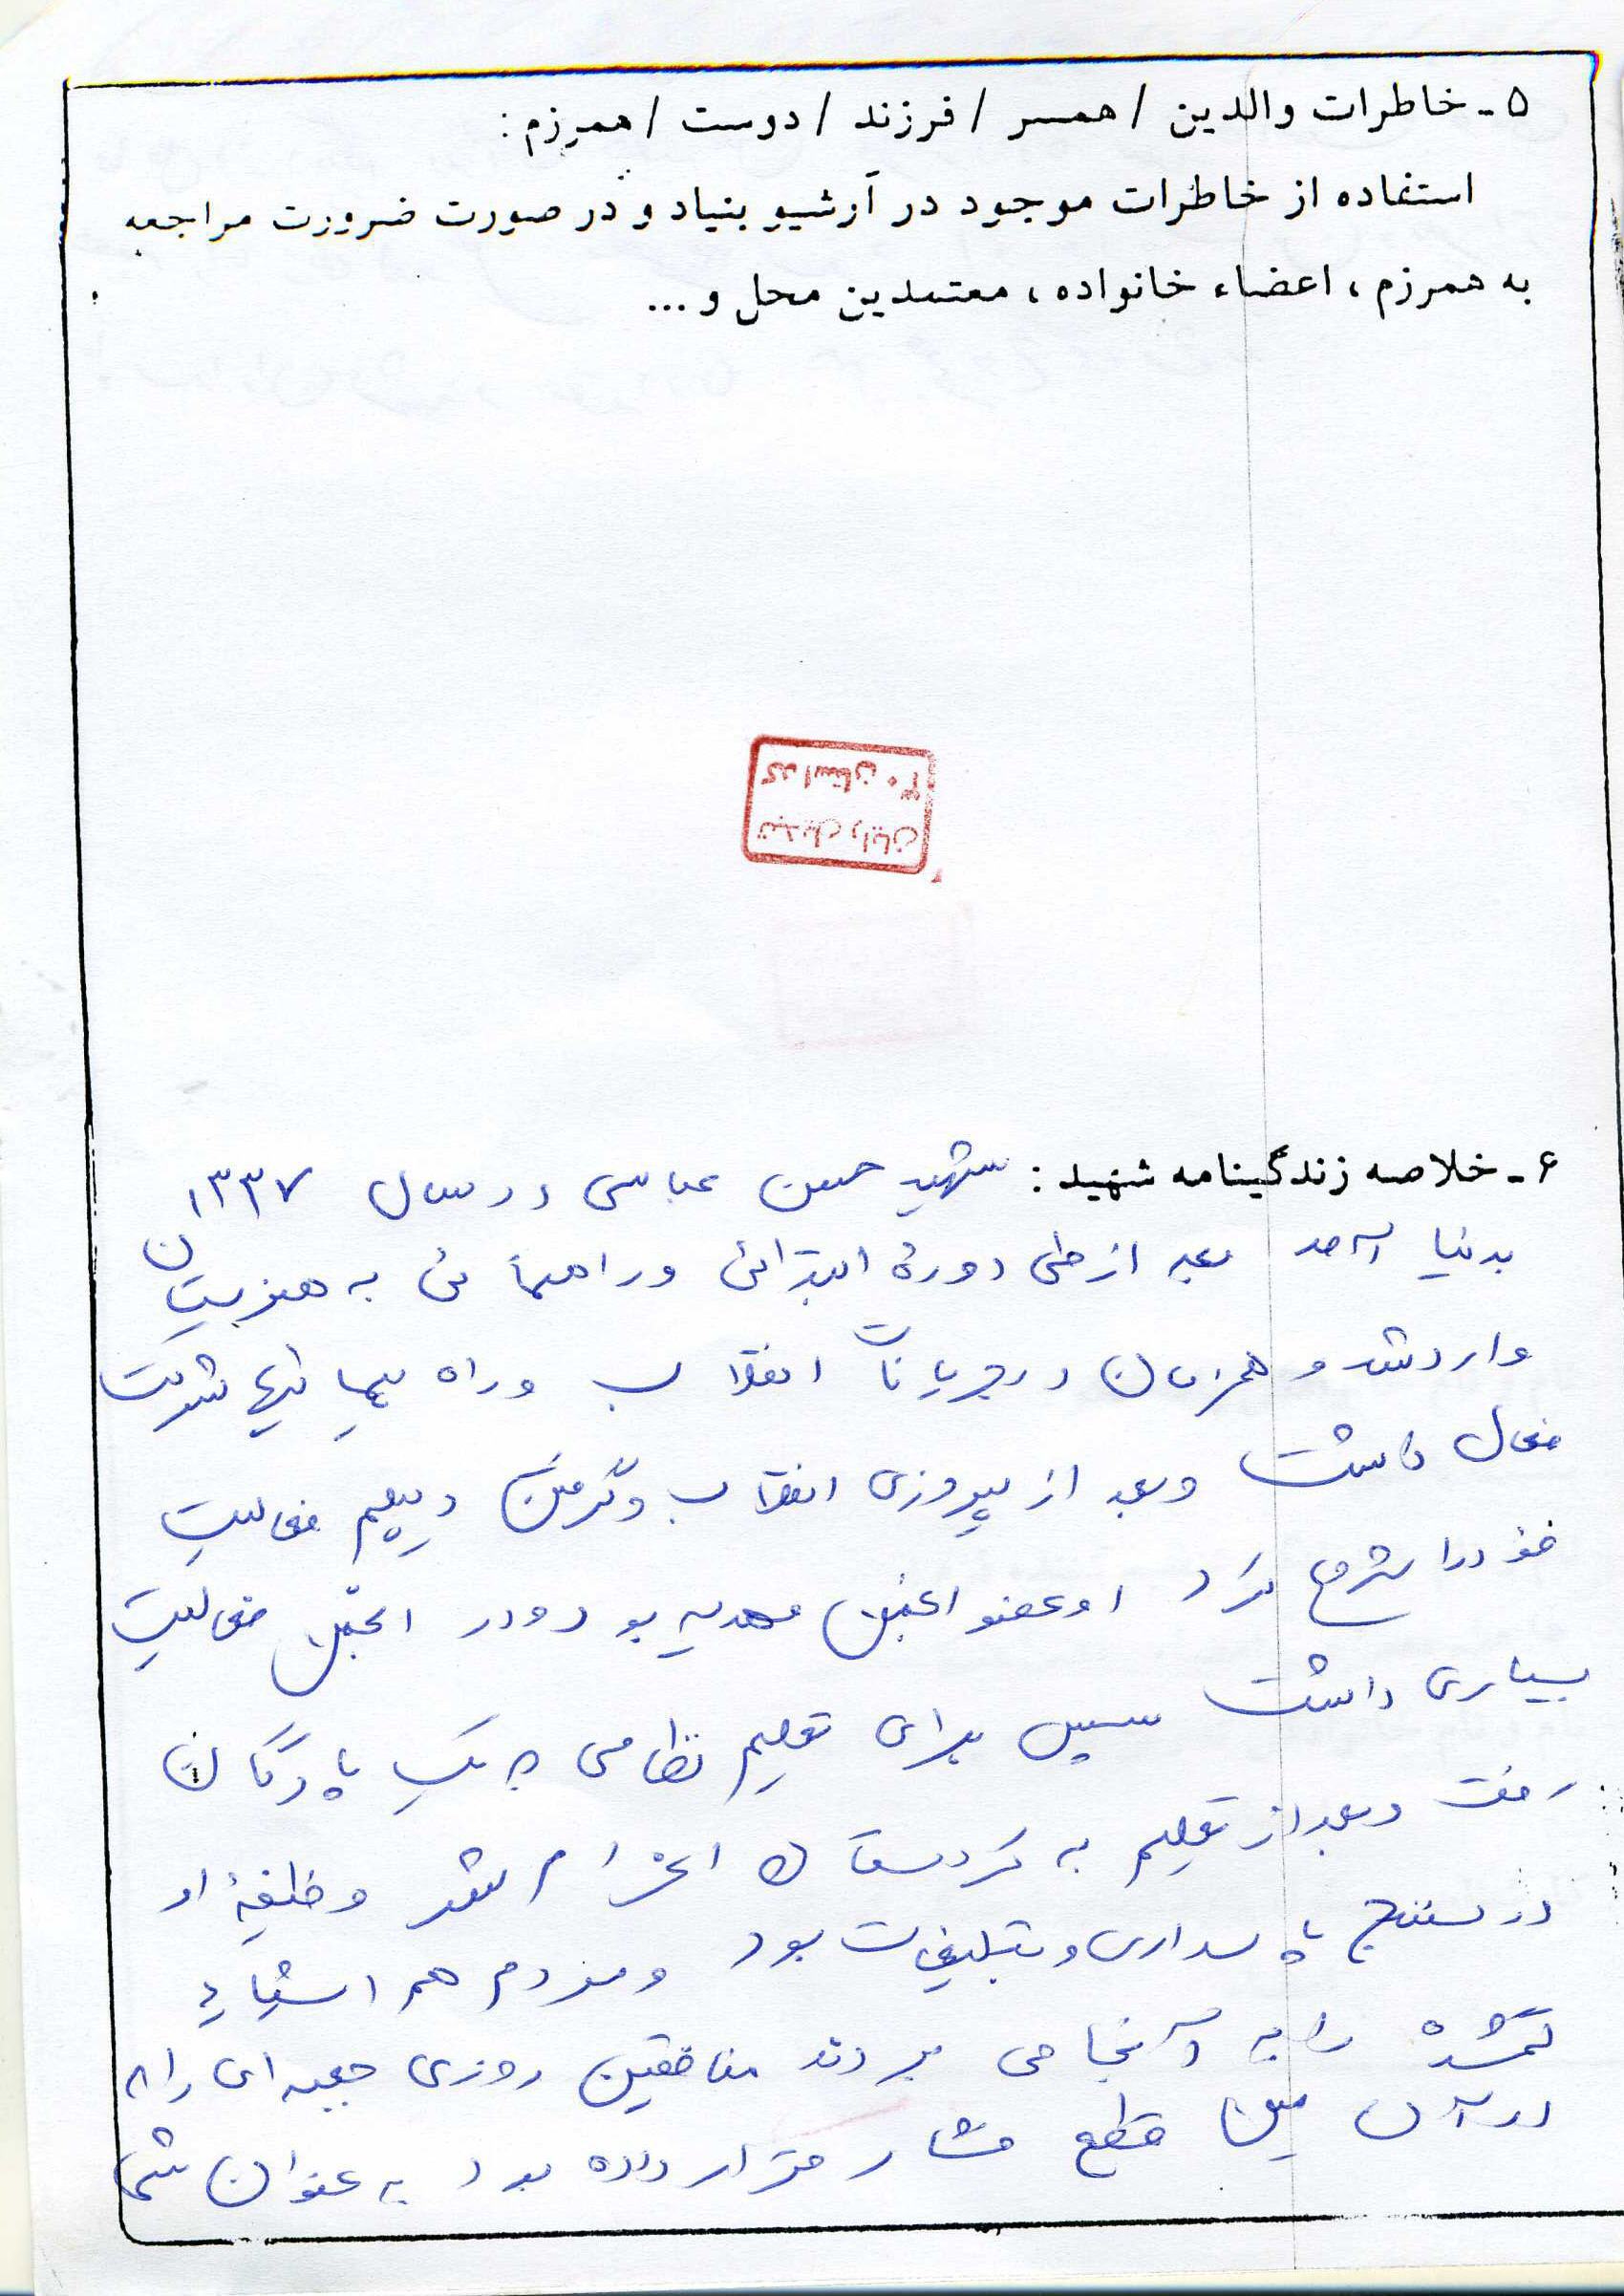 ۵ـ خاطرات والدین / همسر / فرزند / دوست / همرزم :
استفاده از خاطرات موجود در آرشیو بنیاد و در صورت ضرورت مراجعه
به همرزم ، اعضاء خانواده ، معتمدین محل و ...
کد استان ۲۰
تبدیل رایان
۶ـ خلاصه زندگینامه شهید : شهید حسن عباسی در سال ۱۳۳۷
بدنیا آمد بعد از طی دورهٔ ابتدائی و راهنمائی به هنرستان
وارد شد و همزمان در جریانات انقلاب و راه پیمائیها شرکت
فعال داشت و بعد از پیروزی انقلاب و گرفتن دیپلم فعالیت
خود را شروع کرد او عضو انجمن مهدیه بود و در انجمن فعالیت
بسیاری داشت سپس برای تعلیم نظامی به یک پادگان
رفت و بعد از تعلیم به کردستان اعزام شد وظیفهٔ او
در سنندج پاسداری و تبلیغات بود و مردم هم اشیاء
گمشده را به آنجا می بردند منافقین روزی جعبه ای را که
در آن مین قطع فشار قرار داده بود به عنوان